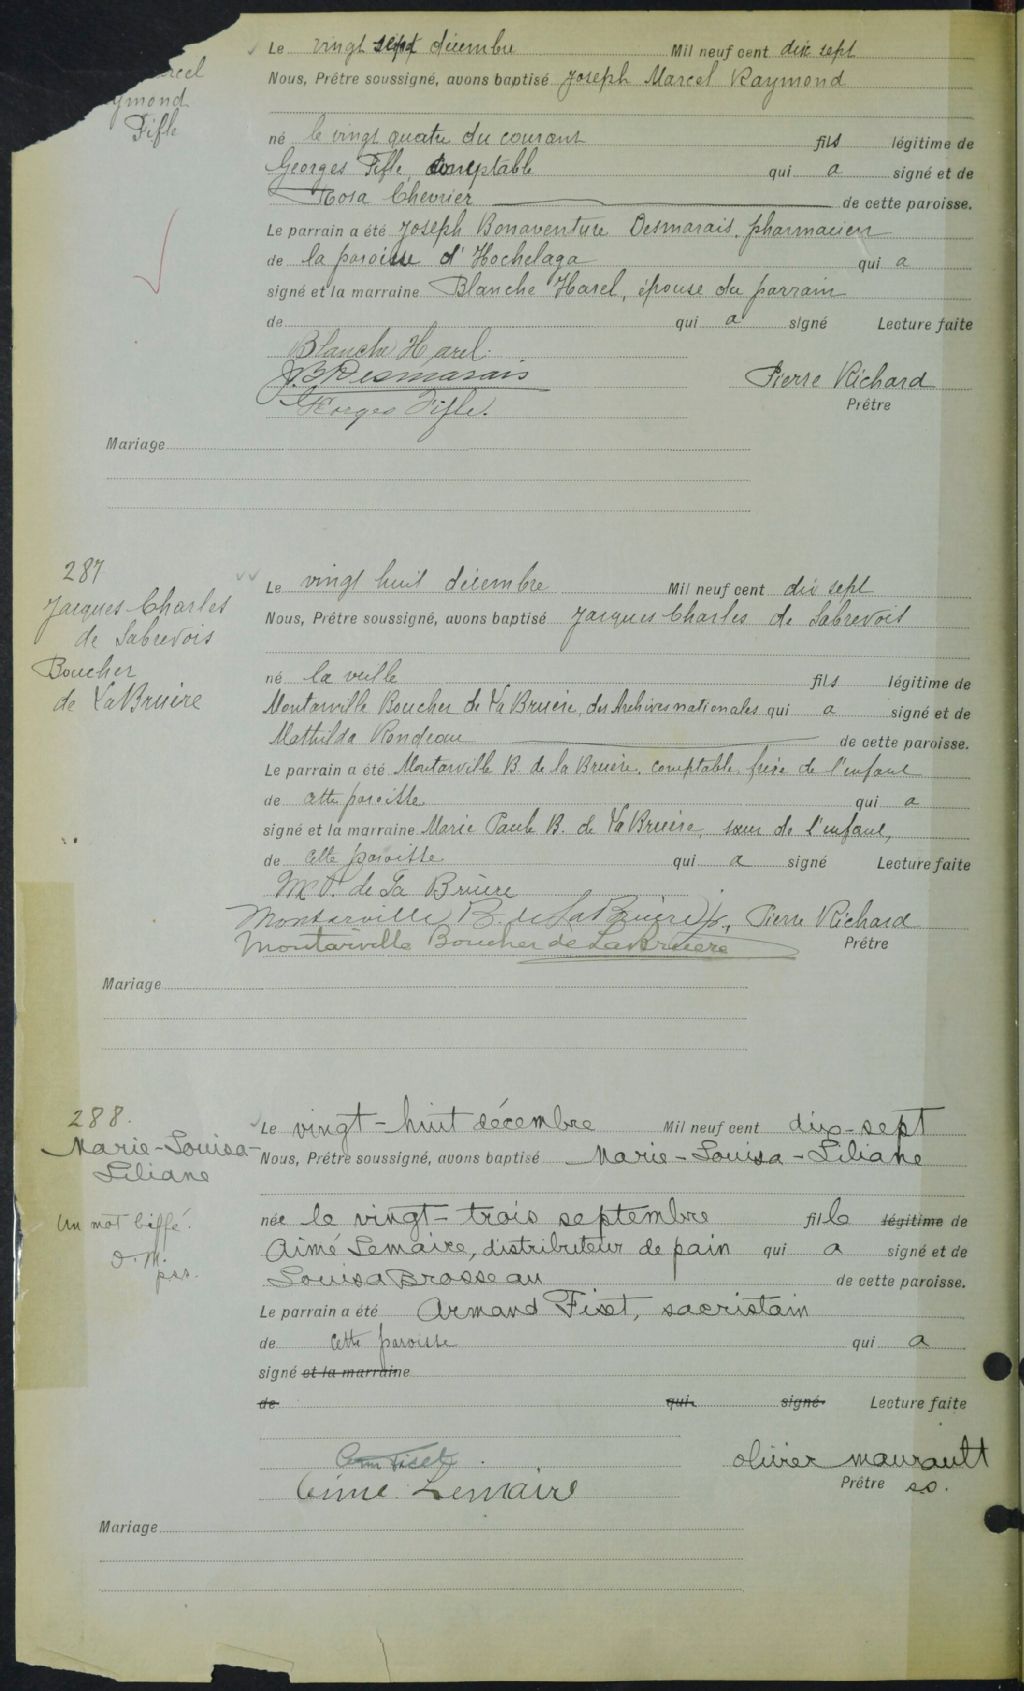 Le vingt sept décembre Mil neuf cent dix sept
Nous, Prêtre soussigné, avons baptisé Joseph Marcel Raymond
rcel
ymond
Fifle
né le vingt quatre du courant fils légitime de
Georges Fifle, comptable qui a signé et de
Rosa Chevrier de cette paroisse.
Le parrain a été Joseph Bonaventure Desmarais, pharmacien
de la paroisse d'Hochelaga qui a
signé et la marraine Blanche Harel, épouse du parrain
de qui a signé Lecture faite
Blanche Harel.
J.B Desmarais
Georges Fifle. Pierre Richard
Prêtre
Mariage
287
Jacques Charles
de Sabrevois
Boucher
de LaBruère
Le vingt huit décembre Mil neuf cent dix sept
Nous, Prêtre soussigné, avons baptisé Jacques Charles de Sabrevois
né la veille fils légitime de
Montarville Boucher de LaBruère, des Archives nationales qui a signé et de
Mathilda Rondeau de cette paroisse.
Le parrain a été Montarville B. de la Bruère, comptable, frère de l'enfant
de cette paroisse qui a
signé et la marraine Marie Paule B. de LaBruère, sœur de l'enfant,
de cette paroisse qui a signé Lecture faite
M. P. de La Bruère
Montarville B. de LaBruère jr., Pierre Richard
Montarville Boucher de LaBruère Prêtre
Mariage
288.
Marie-Louisa-
Liliane
Un mot biffé.
O. M.
pss.
Le vingt-huit décembre Mil neuf cent dix-sept
Nous, Prêtre soussigné, avons baptisé Marie-Louisa-Liliane
née le vingt-trois septembre fille légitime de
Aimé Lemaire, distributeur de pain qui a signé et de
Louisa Brosseau de cette paroisse.
Le parrain a été Armand Fiset, sacristain
de cette paroisse qui a
signé et la marraine
de qui signé Lecture faite
Arm Fiset
Aimé Lemaire olivier maurault
Prêtre
Mariage